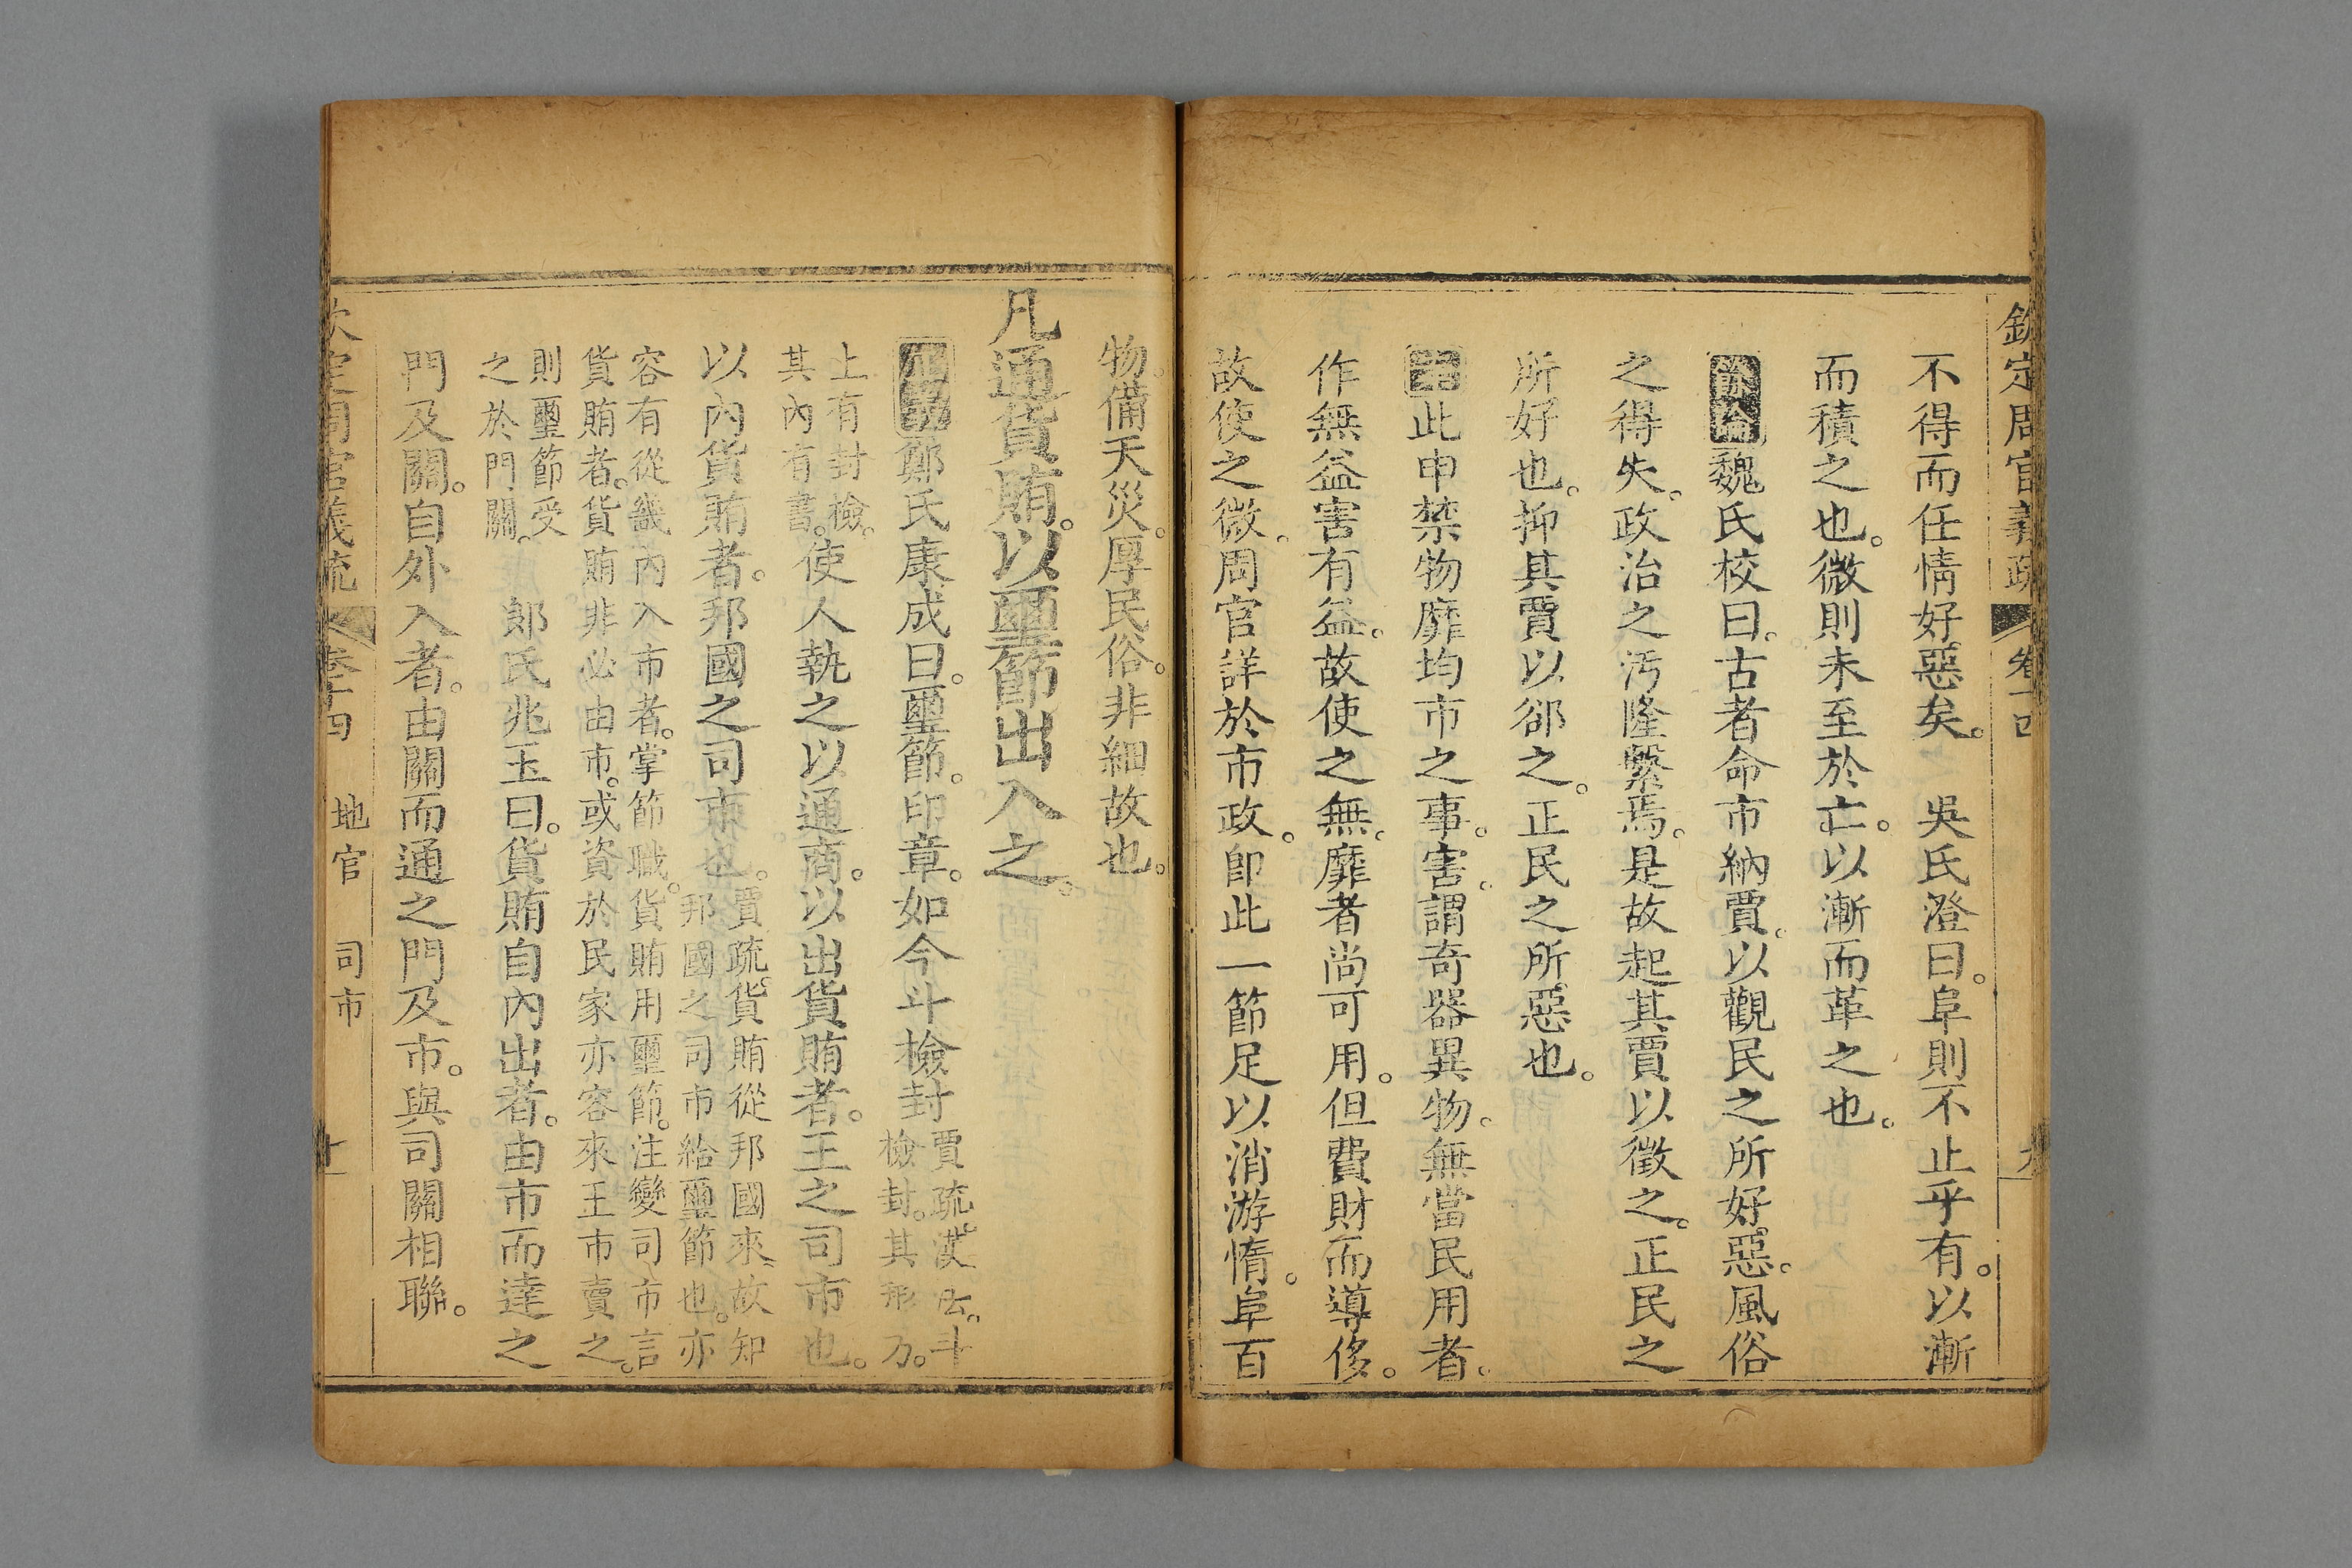 欽定周官義疏 卷十四 九
不得而任情好惡矣。 吳氏澄曰。阜則不止乎有。以漸
而積之也。微則未至於亡。以漸而革之也。
餘論魏氏校曰。古者命市納賈。以觀民之所好惡。風俗
之得失。政治之汚隆繫焉。是故起其賈以徵之。正民之
所好也。抑其賈以郤之。正民之所惡也。
此申禁物靡均市之事。害。謂奇器異物。無當民用者。
作無益害有益。故使之無。靡者尚可用。但費財而導侈。
故使之微。周官詳於市政。卽此一節足以消游惰。阜百
物。備天災。厚民俗。非細故也。
凡通貨賄。以璽節出入之。
鄭氏康成曰。璽節。印章。如今斗檢封
賈疏。漢法。斗
檢封。其形方。
上有封檢。
其內有書。
使人執之以通商。以出貨賄者。王之司市也。
以內貨賄者。邦國之司市也。
賈疏。貨賄從邦國來。故知
邦國之司市給璽節也。亦
容有從畿內入市者。掌節職。貨賄用璽節。注變司市言
貨賄者。貨賄非必由市。或資於民家。亦容來王市賣之。
則璽節受
之於門關。
郞氏兆玉曰。貨賄自內出者。由市而達之
門及關。自外入者。由關而通之門及市。與司關相聯。
欽定周官義疏 卷十四 地官 司市 十